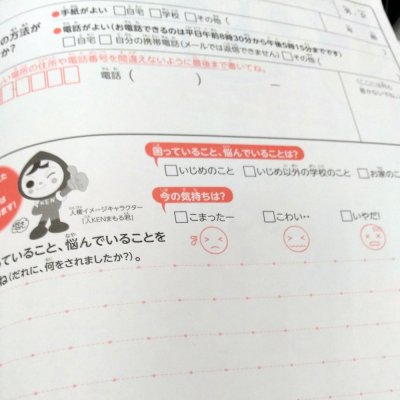 の方法が
●手紙がよい □自宅 □学校 □その他（
か？
●電話がよい（お電話できるのは平日午前8時30分から午後5時15分までです）
□自宅 □自分の携帯電話（メールでは返信できません）□その他（
い場所の住所や電話番号を間違えないように最後まで書いてね。
電話（ ） ー
困っていること、悩んでいることは？
□いじめのこと □いじめ以外の学校のこと □お家のこ
KEN
人権イメージキャラクター
「人KENまもる君」
今の気持ちは？
□こまったー □こわい‥ □いやだ！
っていること、悩んでいることを
ね（だれに、何をされましたか？）。